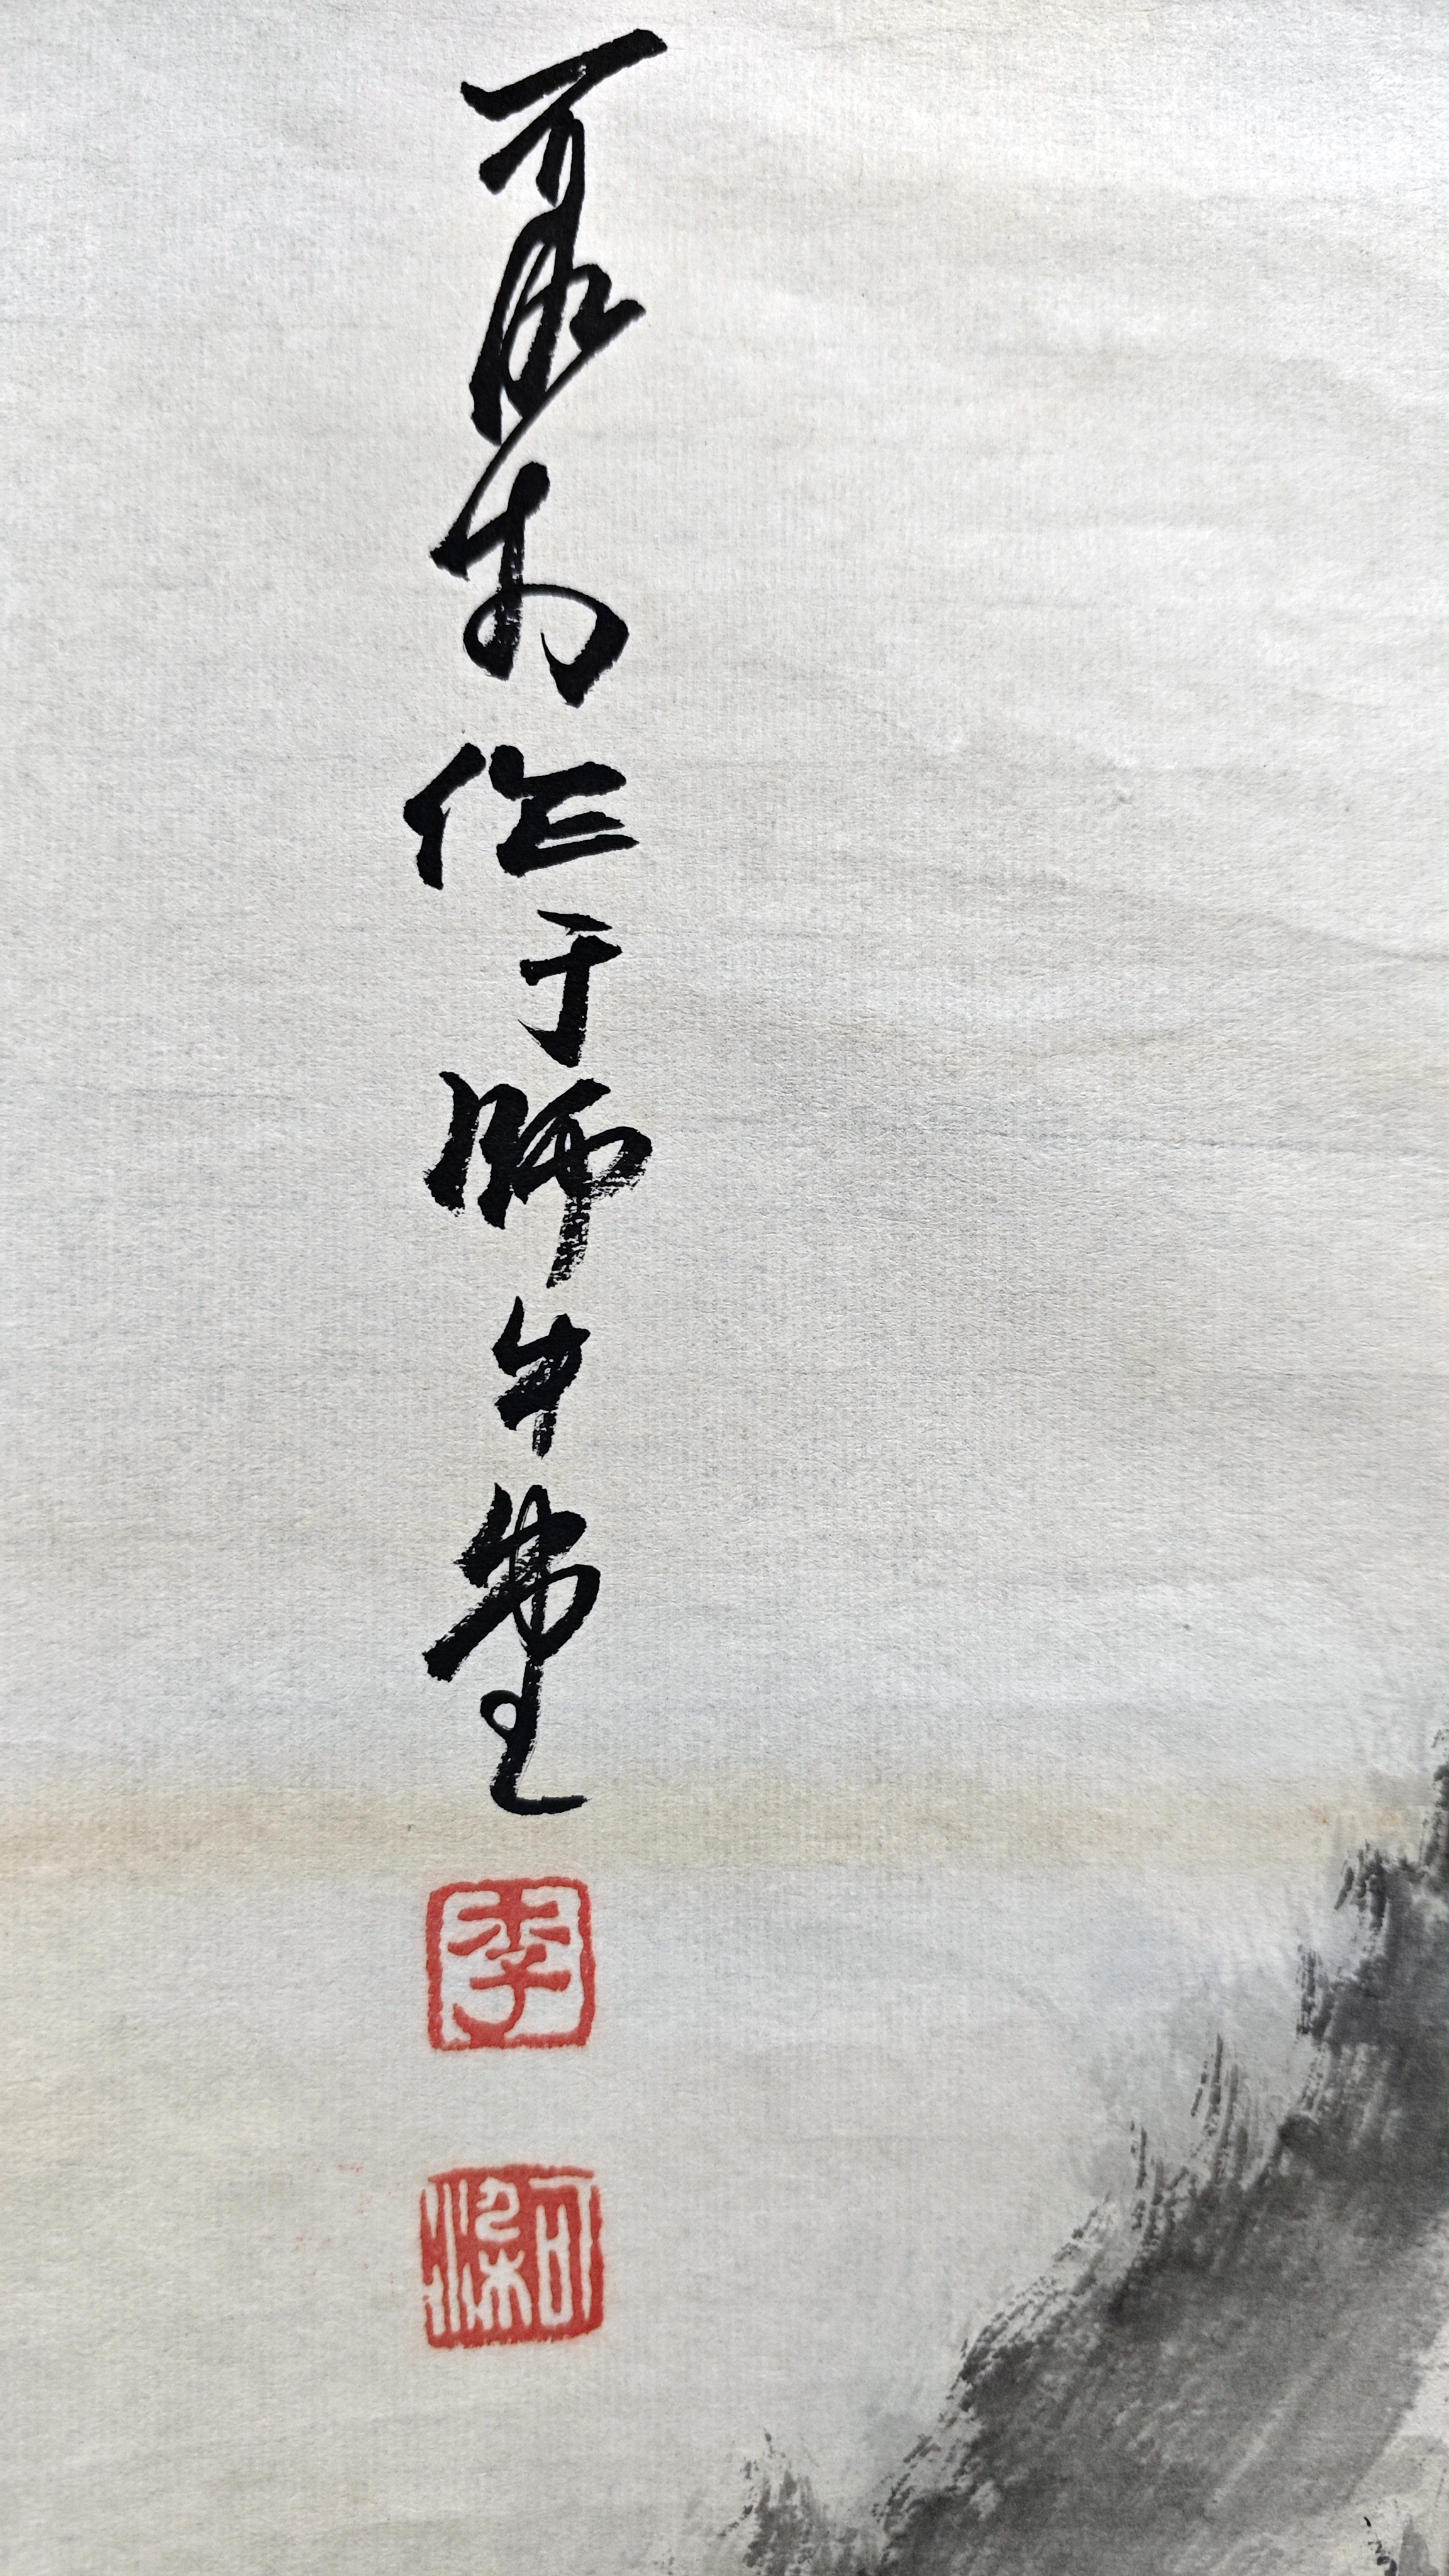 可染 作于师牛堂
李
可染